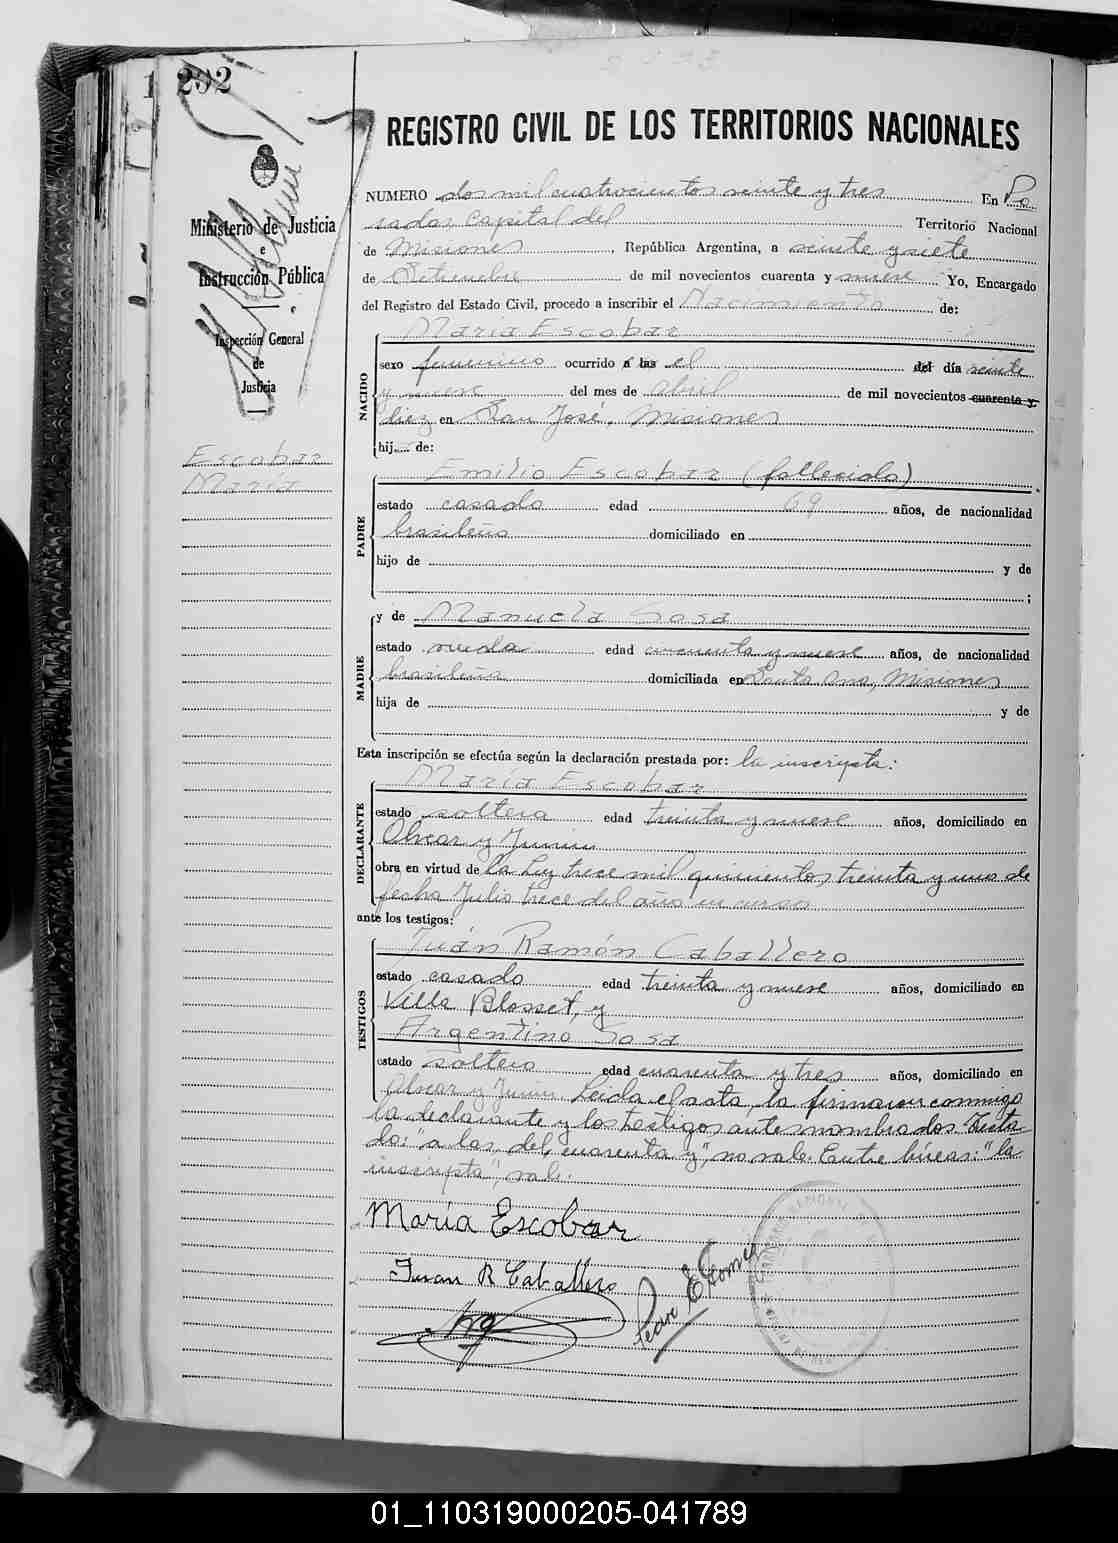 292
REGISTRO CIVIL DE LOS TERRITORIOS NACIONALES
Ministerio de Justicia
e
Instrucción Pública
Inspección General
de
Justicia
Escobar
María
NUMERO dos mil cuatrocientos veinte y tres En Po
sadas, capital del Territorio Nacional
de Misiones, República Argentina, a veinte y siete
de Setiembre de mil novecientos cuarenta y nueve Yo, Encargado
del Registro del Estado Civil, procedo a inscribir el Nacimiento de:
NACIDO
María Escobar
sexo femenino ocurrido a las el del día veinte
y nueve del mes de abril de mil novecientos cuarenta y
diez en San José, Misiones
hij.... de:
PADRE
Emilio Escobar (fallecido)
estado casado edad 69 años, de nacionalidad
brasileño domiciliado en
hijo de y de
;
MADRE
y de Manuela Sosa
estado viuda edad cincuenta y nueve años, de nacionalidad
brasileña domiciliada en Santa Ana, Misiones
hija de y de
Esta inscripción se efectúa según la declaración prestada por: la inscripta:
DECLARANTE
María Escobar
estado soltera edad treinta y nueve años, domiciliado en
Alvear y Junín
obra en virtud de la Ley trece mil quinientos treinta y uno de
fecha Julio trece del año en curso
ante los testigos:
TESTIGOS
Juán Ramón Caballero
estado casado edad treinta y nueve años, domiciliado en
Villa Blosset, y
Argentino Sosa
estado soltero edad cuarenta y tres años, domiciliado en
Alvear y Junín Leida el acta, la firmaron conmigo
la declarante y los testigos antes nombrados. Testa
do: "a las, del, cuarenta y", no vale. Entre líneas: "la
inscripta", vale.
María Escobar
Juan R Caballero
01_110319000205-041789